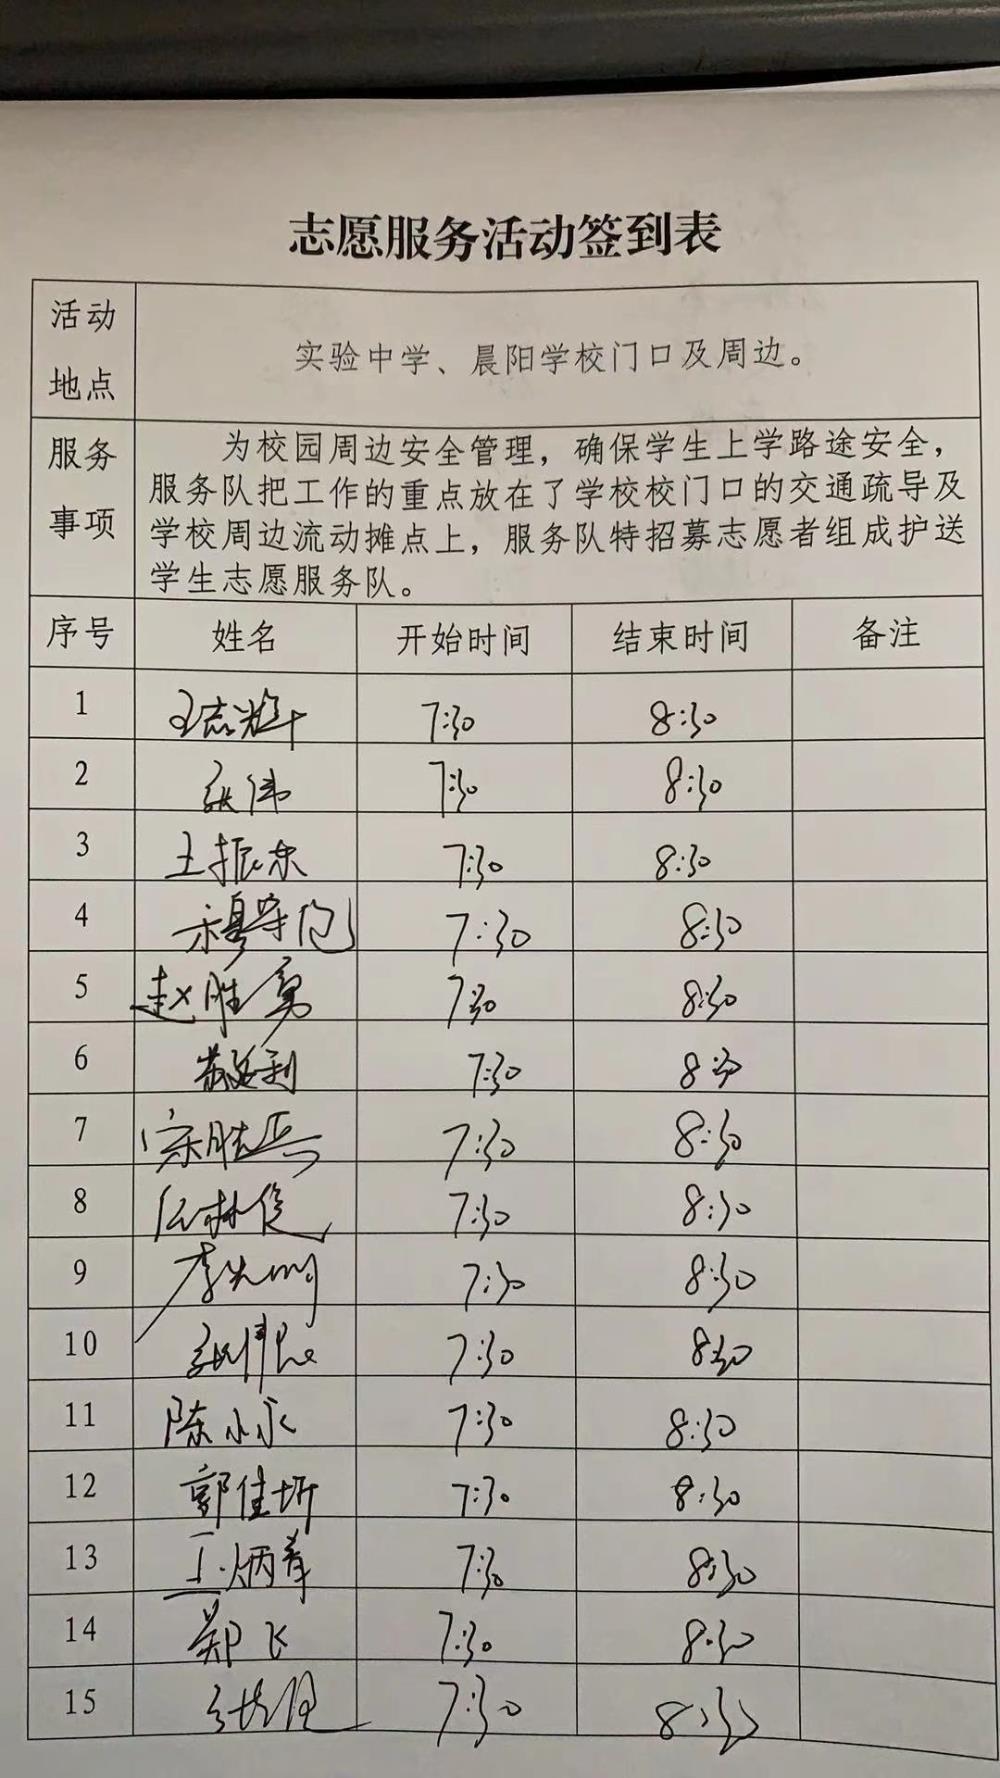 志愿服务活动签到表
活动地点 实验中学、晨阳学校门口及周边。
服务事项 为校园周边安全管理，确保学生上学路途安全，
服务队把工作的重点放在了学校校门口的交通疏导及
学校周边流动摊点上，服务队特招募志愿者组成护送
学生志愿服务队。
序号 姓名 开始时间 结束时间 备注
1 王志辉 7:30 8:30
2 张伟 7:30 8:30
3 王振东 7:30 8:30
4 7:30 8:30
5 赵胜勇 7:30 8:30
6 7:30 8:30
7 宋胜兵 7:30 8:30
8 7:30 8:30
9 李光明 7:30 8:30
10 7:30 8:30
11 陈小永 7:30 8:30
12 郭佳圻 7:30 8:30
13 7:30 8:30
14 郑飞 7:30 8:30
15 7:30 8:30